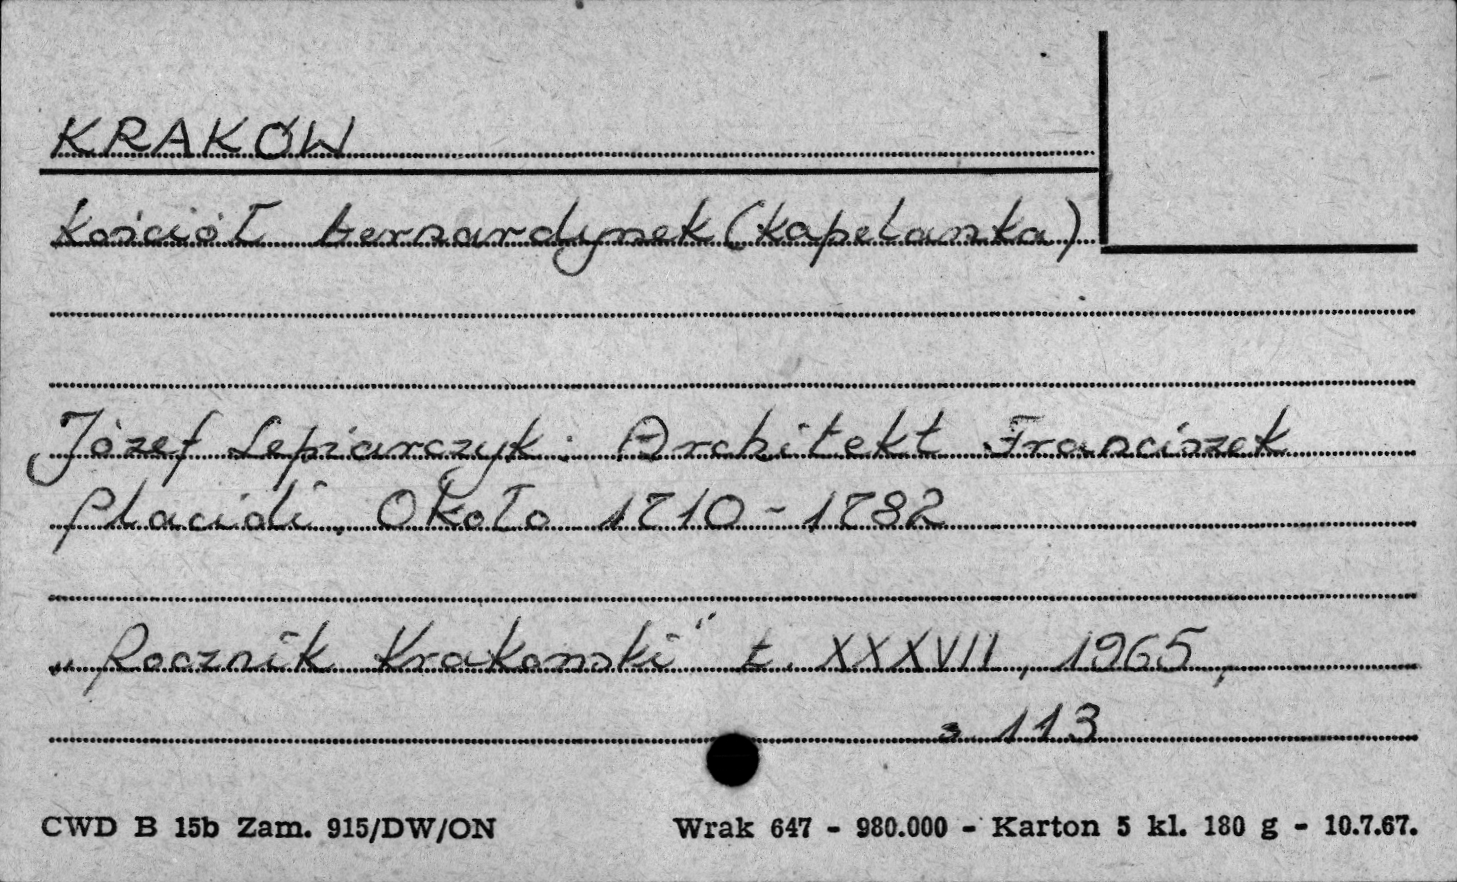 KRAKÓW
Kościół bernardynek (kapelanka)
Józef Lepiarczyk: Architekt Franciszek
Placidi. Około 1710-1782
„Rocznik Krakowski" t. XXXVII, 1965,
s. 113
CWD B 15b Zam. 915/DW/ON Wrak 647 - 980.000 - Karton 5 kl. 180 g - 10.7.67.